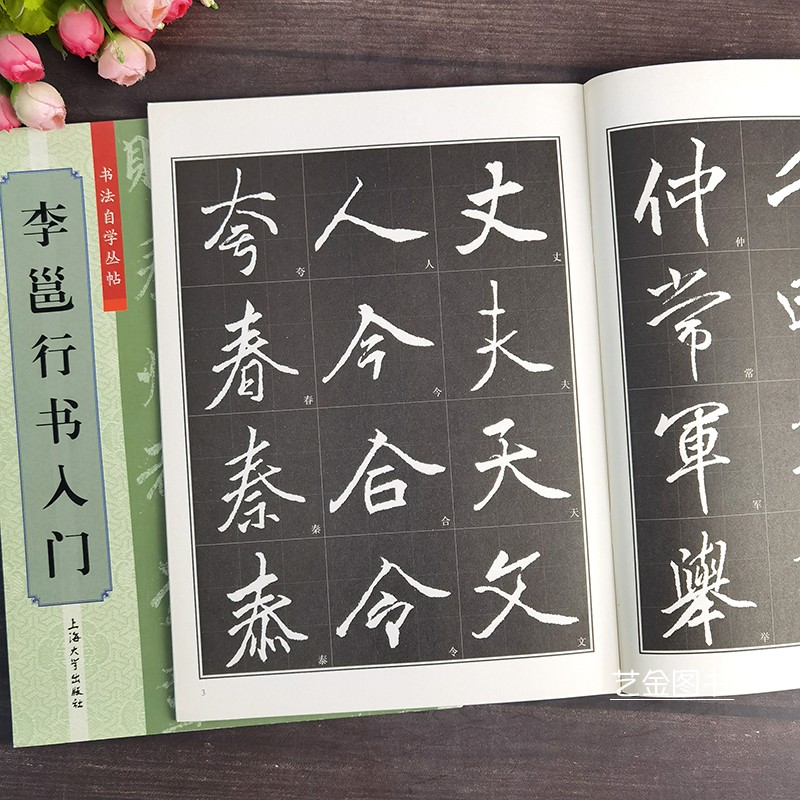 书法自学丛帖
李邕行书入门
上海大学出版社
丈 夫 天 文
丈 夫 天 文
人 今 合 令
人 今 合 令
夸 春 秦 泰
夸 春 秦 泰
3
仲 常 軍 舉
仲 常 军 举
艺金图书